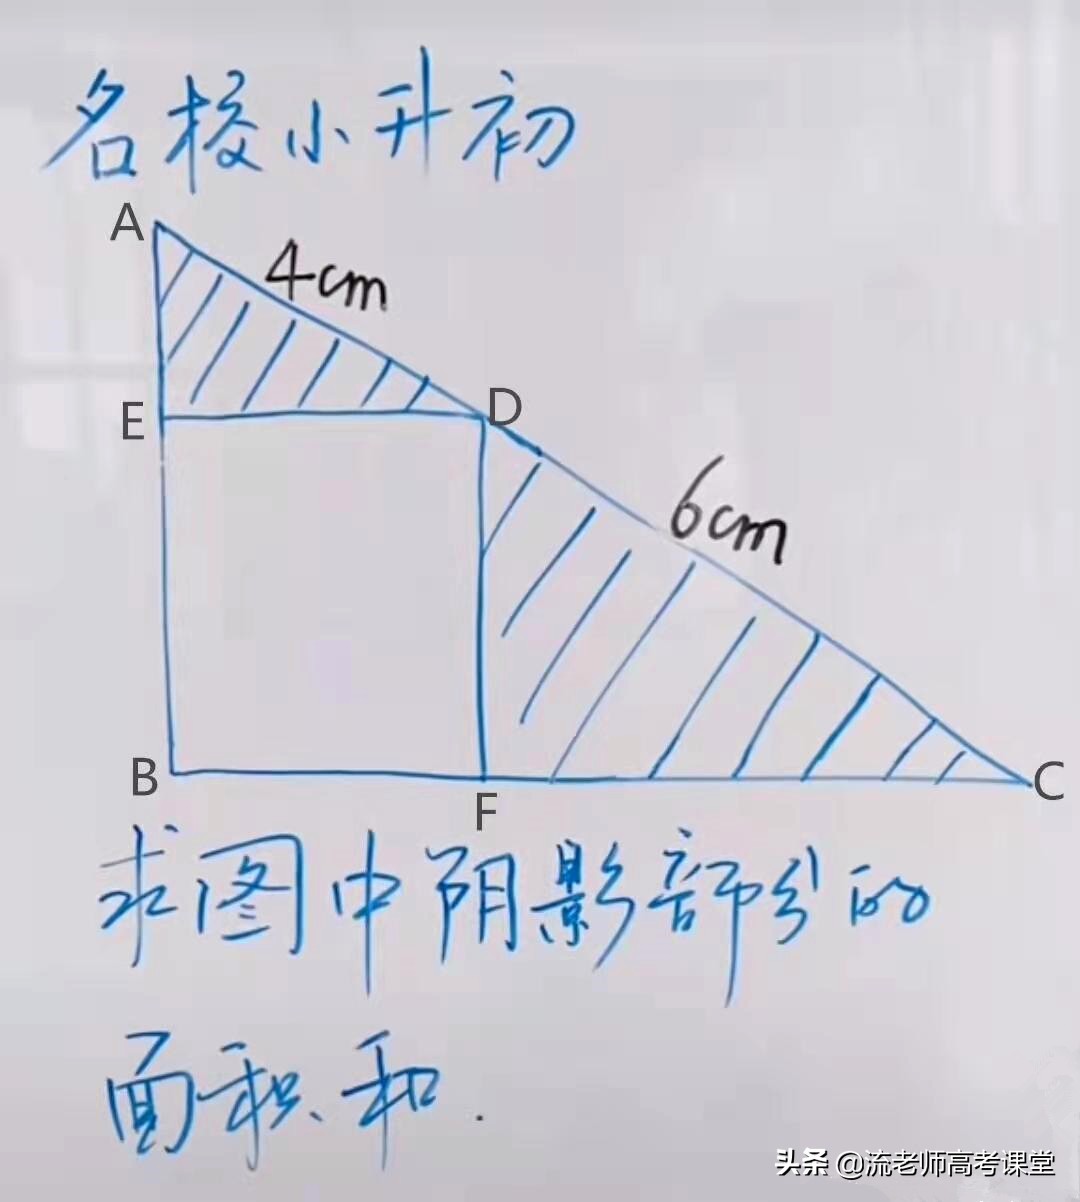 名校小升初
A
4cm
E
D
6cm
B
F
C
求图中阴影部分的
面积和.
头条 @流老师高考课堂